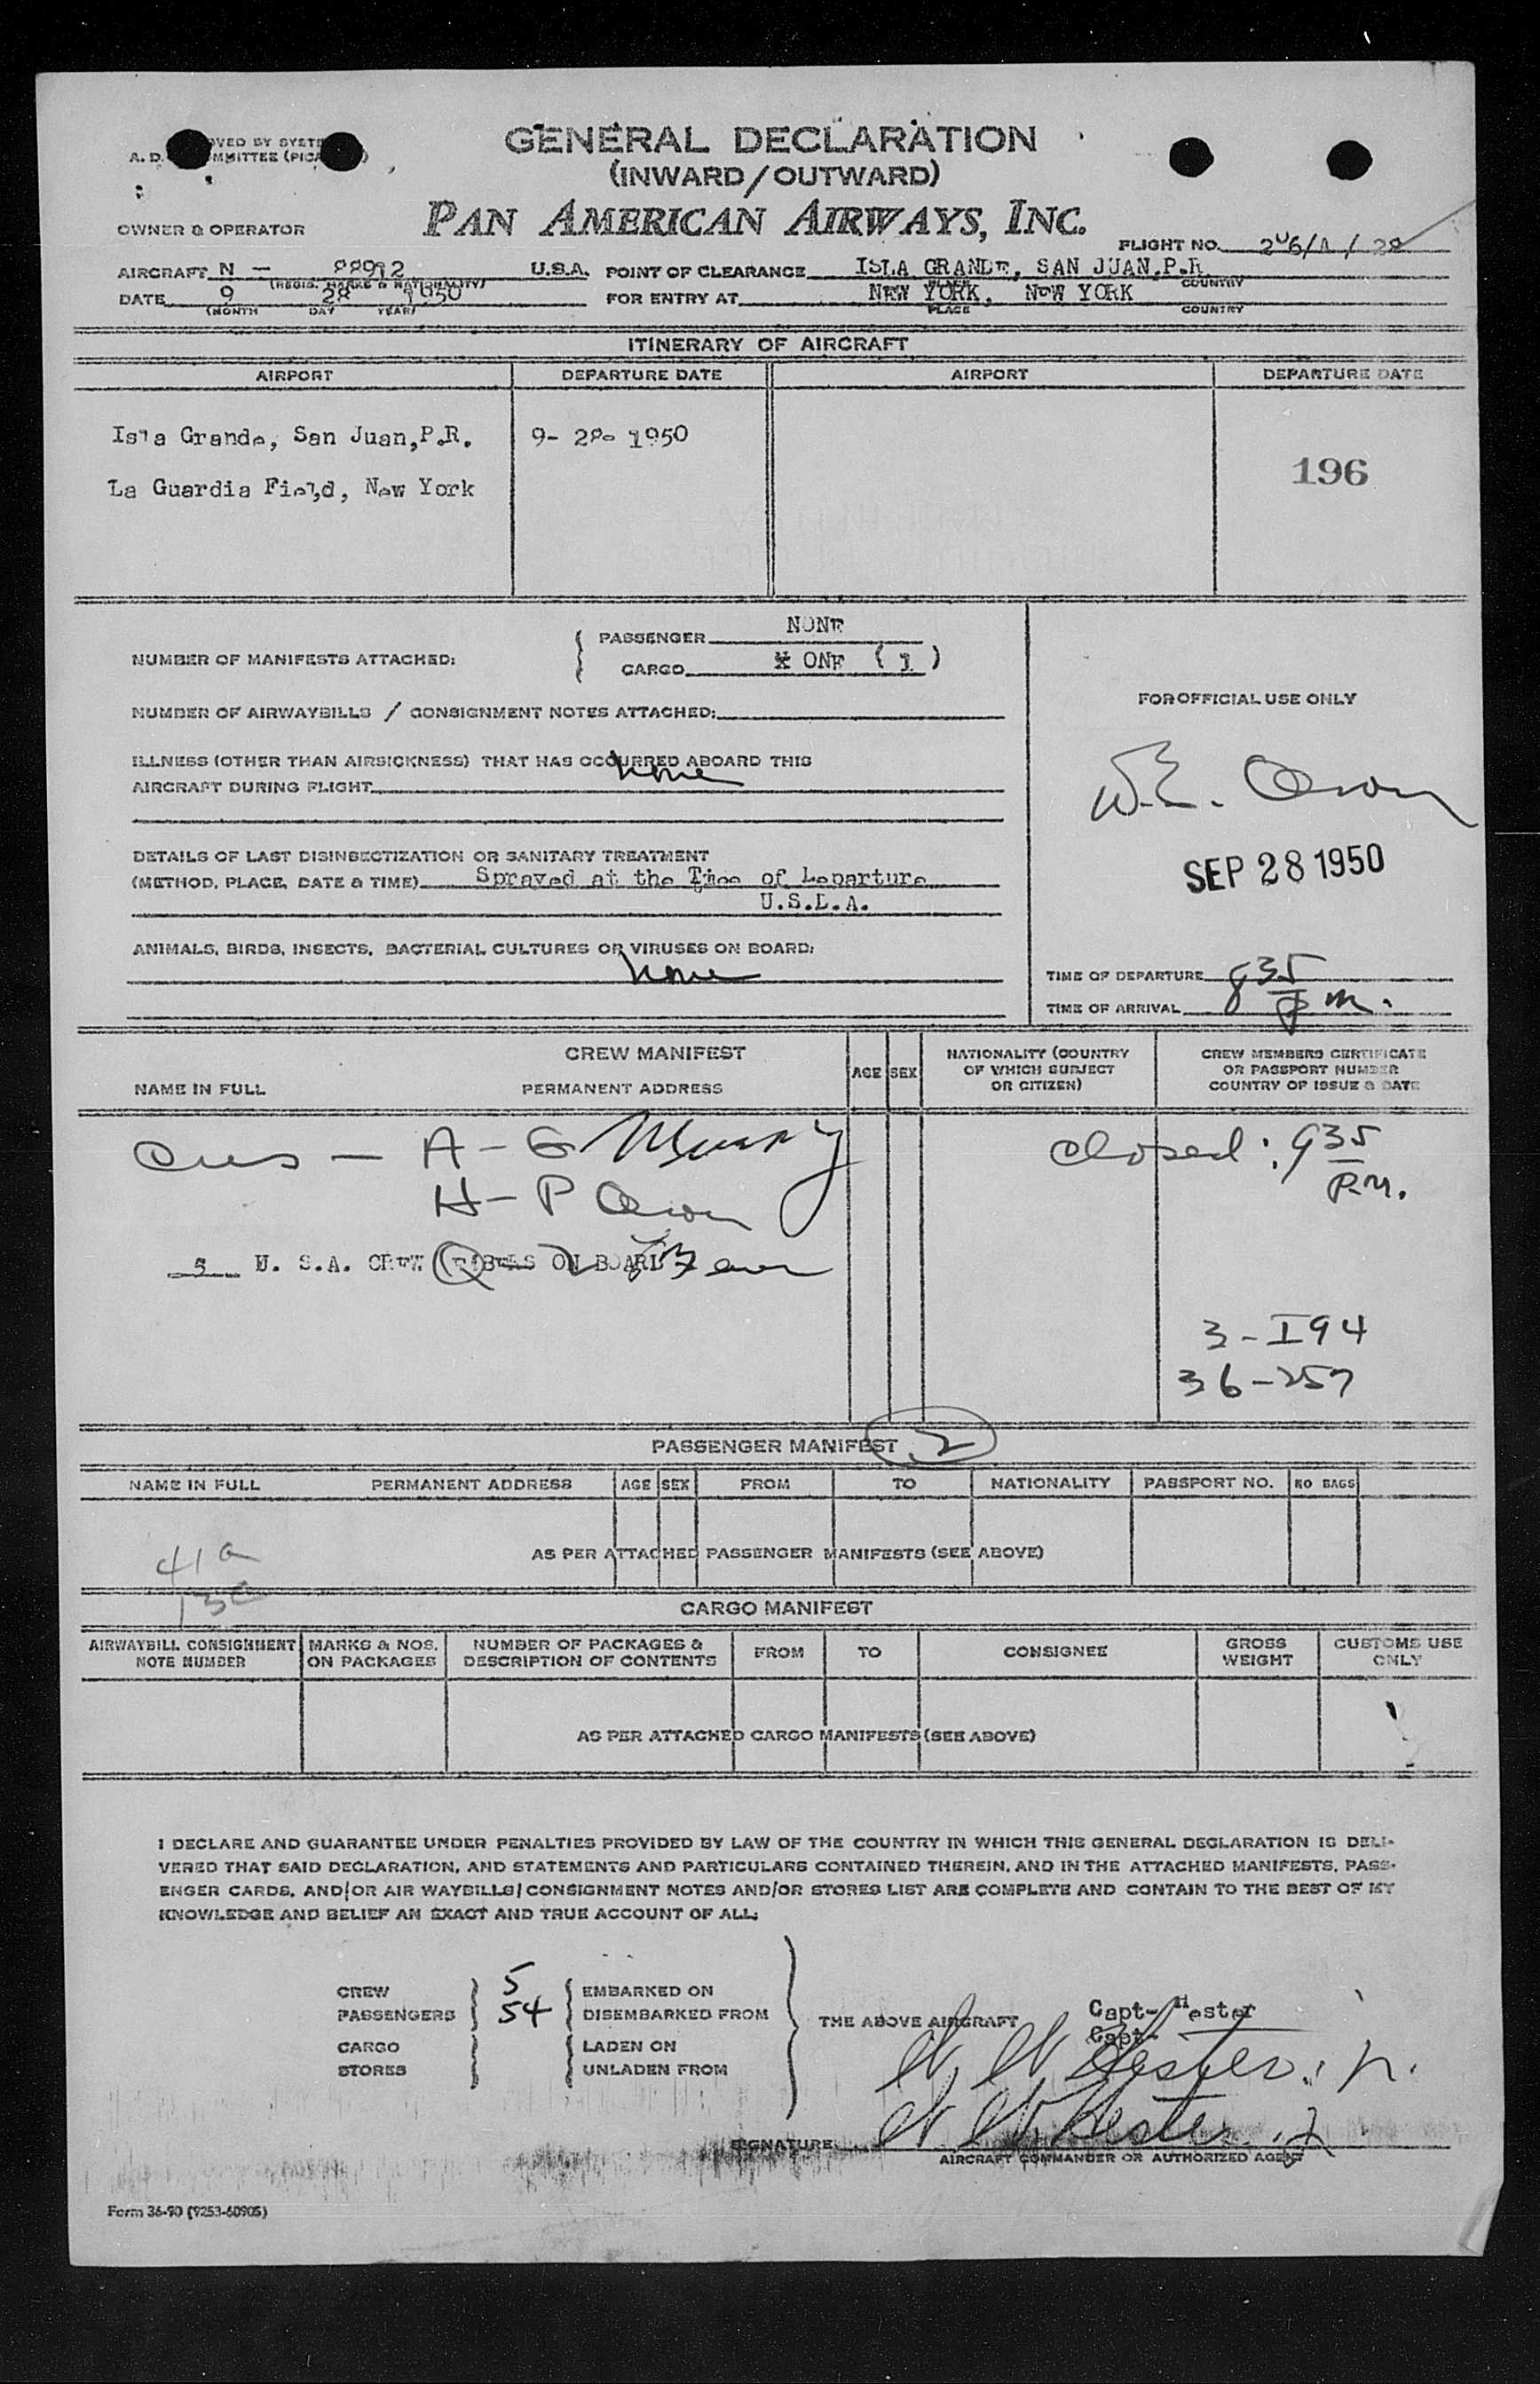 GENERAL DECLARATION
(INWARD/OUTWARD)
PAN AMERICAN AIRWAYS, INC.
OWNER & OPERATOR
FLIGHT NO.
AIRCRAFT N - 88912 U.S.A. POINT OF CLEARANCE ISLA GRANDE, SAN JUAN, P.R.
(REGIS. MARKS & NATIONALITY) COUNTRY
DATE 9 28 1950 FOR ENTRY AT NEW YORK, NEW YORK
(MONTH DAY YEAR) PLACE COUNTRY
ITINERARY OF AIRCRAFT
AIRPORT DEPARTURE DATE AIRPORT DEPARTURE DATE
Isla Grande, San Juan,P.R. 9- 28- 1950
196
La Guardia Field, New York
PASSENGER NONE
NUMBER OF MANIFESTS ATTACHED:
CARGO ONE (1)
NUMBER OF AIRWAYBILLS / CONSIGNMENT NOTES ATTACHED:
FOR OFFICIAL USE ONLY
ILLNESS (OTHER THAN AIRSICKNESS) THAT HAS OCCURRED ABOARD THIS
AIRCRAFT DURING FLIGHT none
W.E.
DETAILS OF LAST DISINSECTIZATION OR SANITARY TREATMENT
(METHOD, PLACE, DATE & TIME) Sprayed at the Time of Departure
U.S.D.A.
SEP 28 1950
ANIMALS, BIRDS, INSECTS, BACTERIAL CULTURES OR VIRUSES ON BOARD:
none
TIME OF DEPARTURE 835
TIME OF ARRIVAL P m.
CREW MANIFEST
NAME IN FULL PERMANENT ADDRESS AGE SEX NATIONALITY (COUNTRY OF WHICH SUBJECT OR CITIZEN) CREW MEMBERS CERTIFICATE OR PASSPORT NUMBER COUNTRY OF ISSUE & DATE
Cus - A - G Murphy closed: 935
H - P P.M.
5 U. S.A. CREW MEMBERS ON BOARD
3 - I94
36 - 257
PASSENGER MANIFEST 2
NAME IN FULL PERMANENT ADDRESS AGE SEX FROM TO NATIONALITY PASSPORT NO. NO BAGS
41a
AS PER ATTACHED PASSENGER MANIFESTS (SEE ABOVE)
13c
CARGO MANIFEST
AIRWAYBILL CONSIGNMENT NOTE NUMBER MARKS & NOS. ON PACKAGES NUMBER OF PACKAGES & DESCRIPTION OF CONTENTS FROM TO CONSIGNEE GROSS WEIGHT CUSTOMS USE ONLY
AS PER ATTACHED CARGO MANIFESTS (SEE ABOVE)
I DECLARE AND GUARANTEE UNDER PENALTIES PROVIDED BY LAW OF THE COUNTRY IN WHICH THIS GENERAL DECLARATION IS DELI-
VERED THAT SAID DECLARATION, AND STATEMENTS AND PARTICULARS CONTAINED THEREIN, AND IN THE ATTACHED MANIFESTS, PASS-
ENGER CARDS, AND/OR AIR WAYBILLS/CONSIGNMENT NOTES AND/OR STORES LIST ARE COMPLETE AND CONTAIN TO THE BEST OF MY
KNOWLEDGE AND BELIEF AN EXACT AND TRUE ACCOUNT OF ALL:
CREW 5 EMBARKED ON
PASSENGERS 54 DISEMBARKED FROM
THE ABOVE AIRCRAFT Capt- Hester
Capt-
CARGO LADEN ON
STORES UNLADEN FROM
W W Hester. jr.
SIGNATURE W W Hester. jr
AIRCRAFT COMMANDER OR AUTHORIZED AGENT
Form 36-90 (9253-60905)